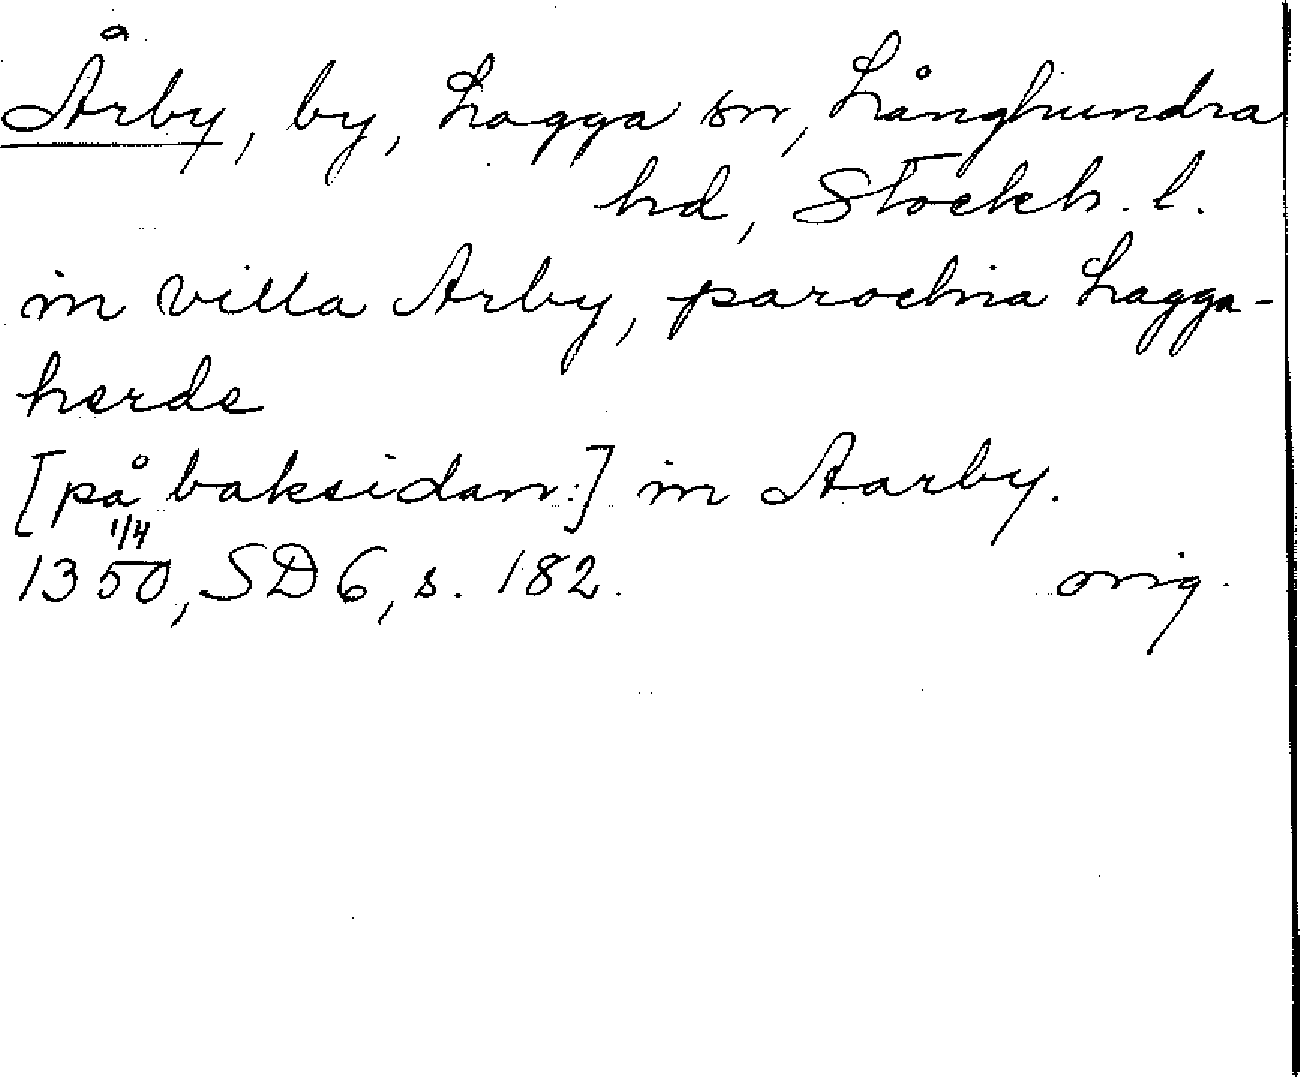 Årby, by, Lagga sn, Långhundra
hd, Stockh. l.
in villa Arby, parochia Lagga-
herde
[på baksidan:] in Aarby.
1350, 1/4 SD 6, s. 182. orig.